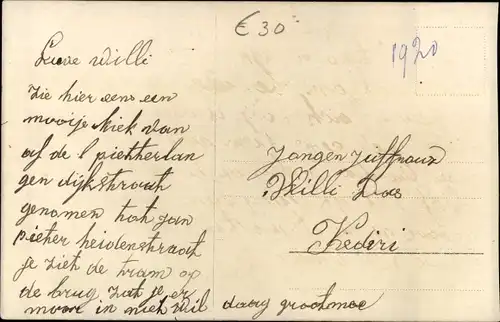 € 30
1920
Lieve Willi
zie hier eens een
mooije kiek van
af de
gen dijkstraat
genomen tot Jan
pieter heidenstraat
je ziet de tram op
de brug zat je er
maar in nich Wil
daag grootmoe
Jongen Juffrouw
Willi
Kediri